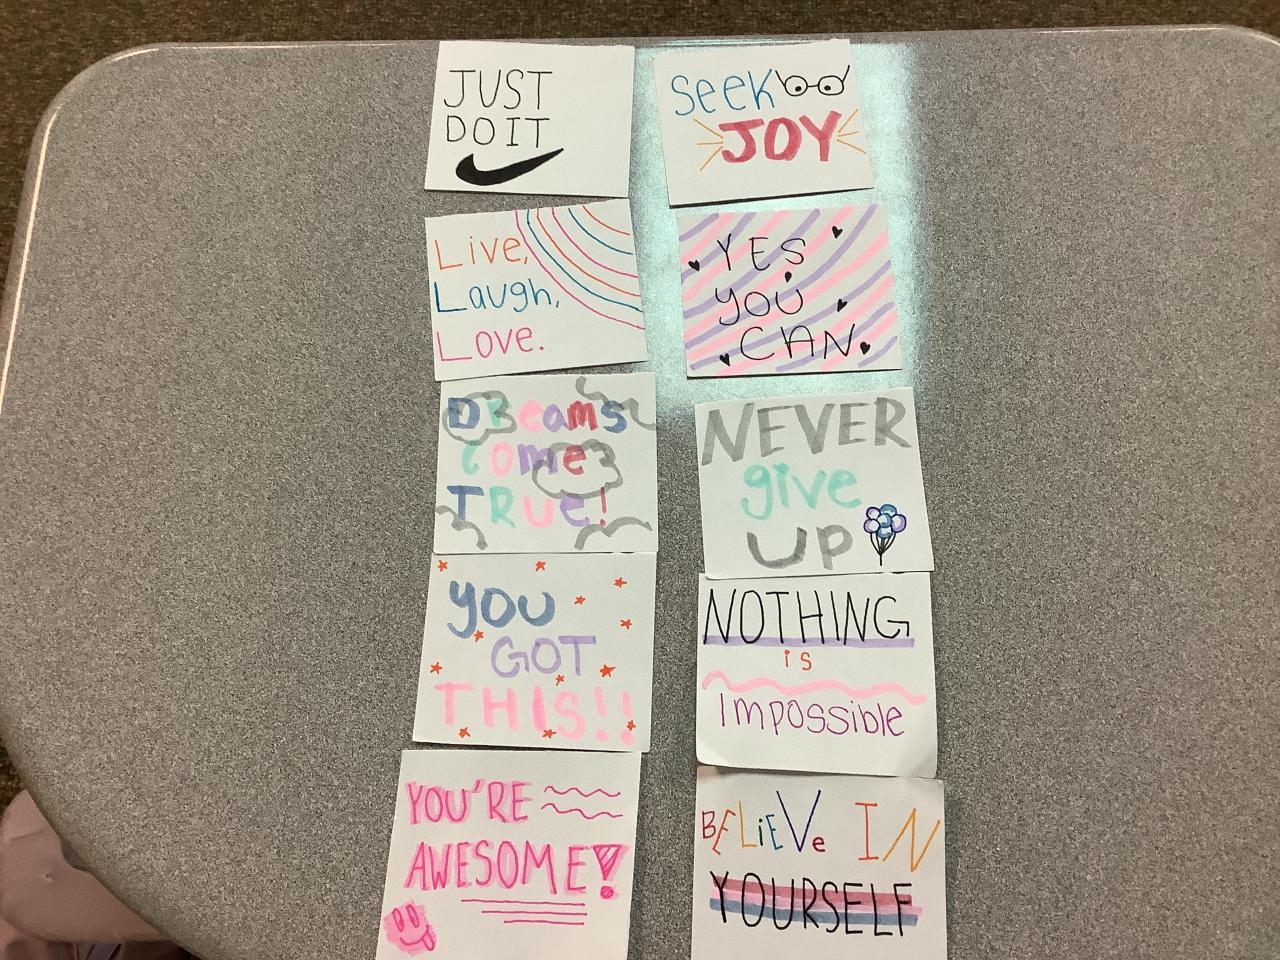 JUST
DO IT
Seek
JOY
Live,
Laugh,
Love.
YES
YOU
CAN
DReams
COme
TRUe!
NEVER
give
UP
YOU
GOT
THIS!!
NOTHING
is
Impossible
YOU'RE
AWESOME!
BELiEVe IN
YOURSELF